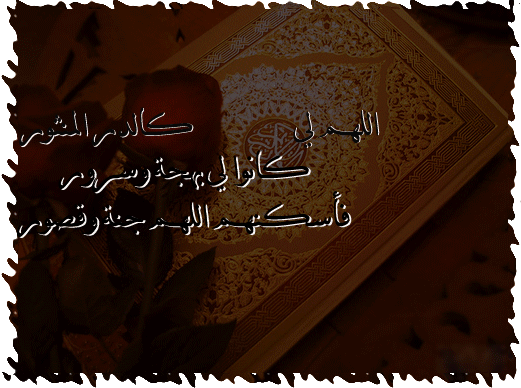 اللهم لي كالدر المنثور
كانوا لي بهجة وسرور
فأسكنهم اللهم جنة وقصور